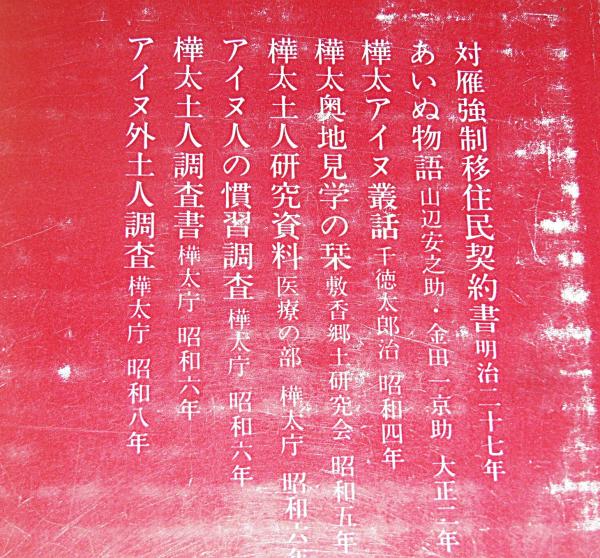 対雁強制移住民契約書 明治二十七年
あいぬ物語 山辺安之助・金田一京助 大正二年
樺太アイヌ叢話 千徳太郎治 昭和四年
樺太奥地見学の栞 敷香郷土研究会 昭和五年
樺太土人研究資料 医療の部 樺太庁 昭和六年
アイヌ人の慣習調査 樺太庁 昭和六年
樺太土人調査書 樺太庁 昭和六年
アイヌ外土人調査 樺太庁 昭和八年